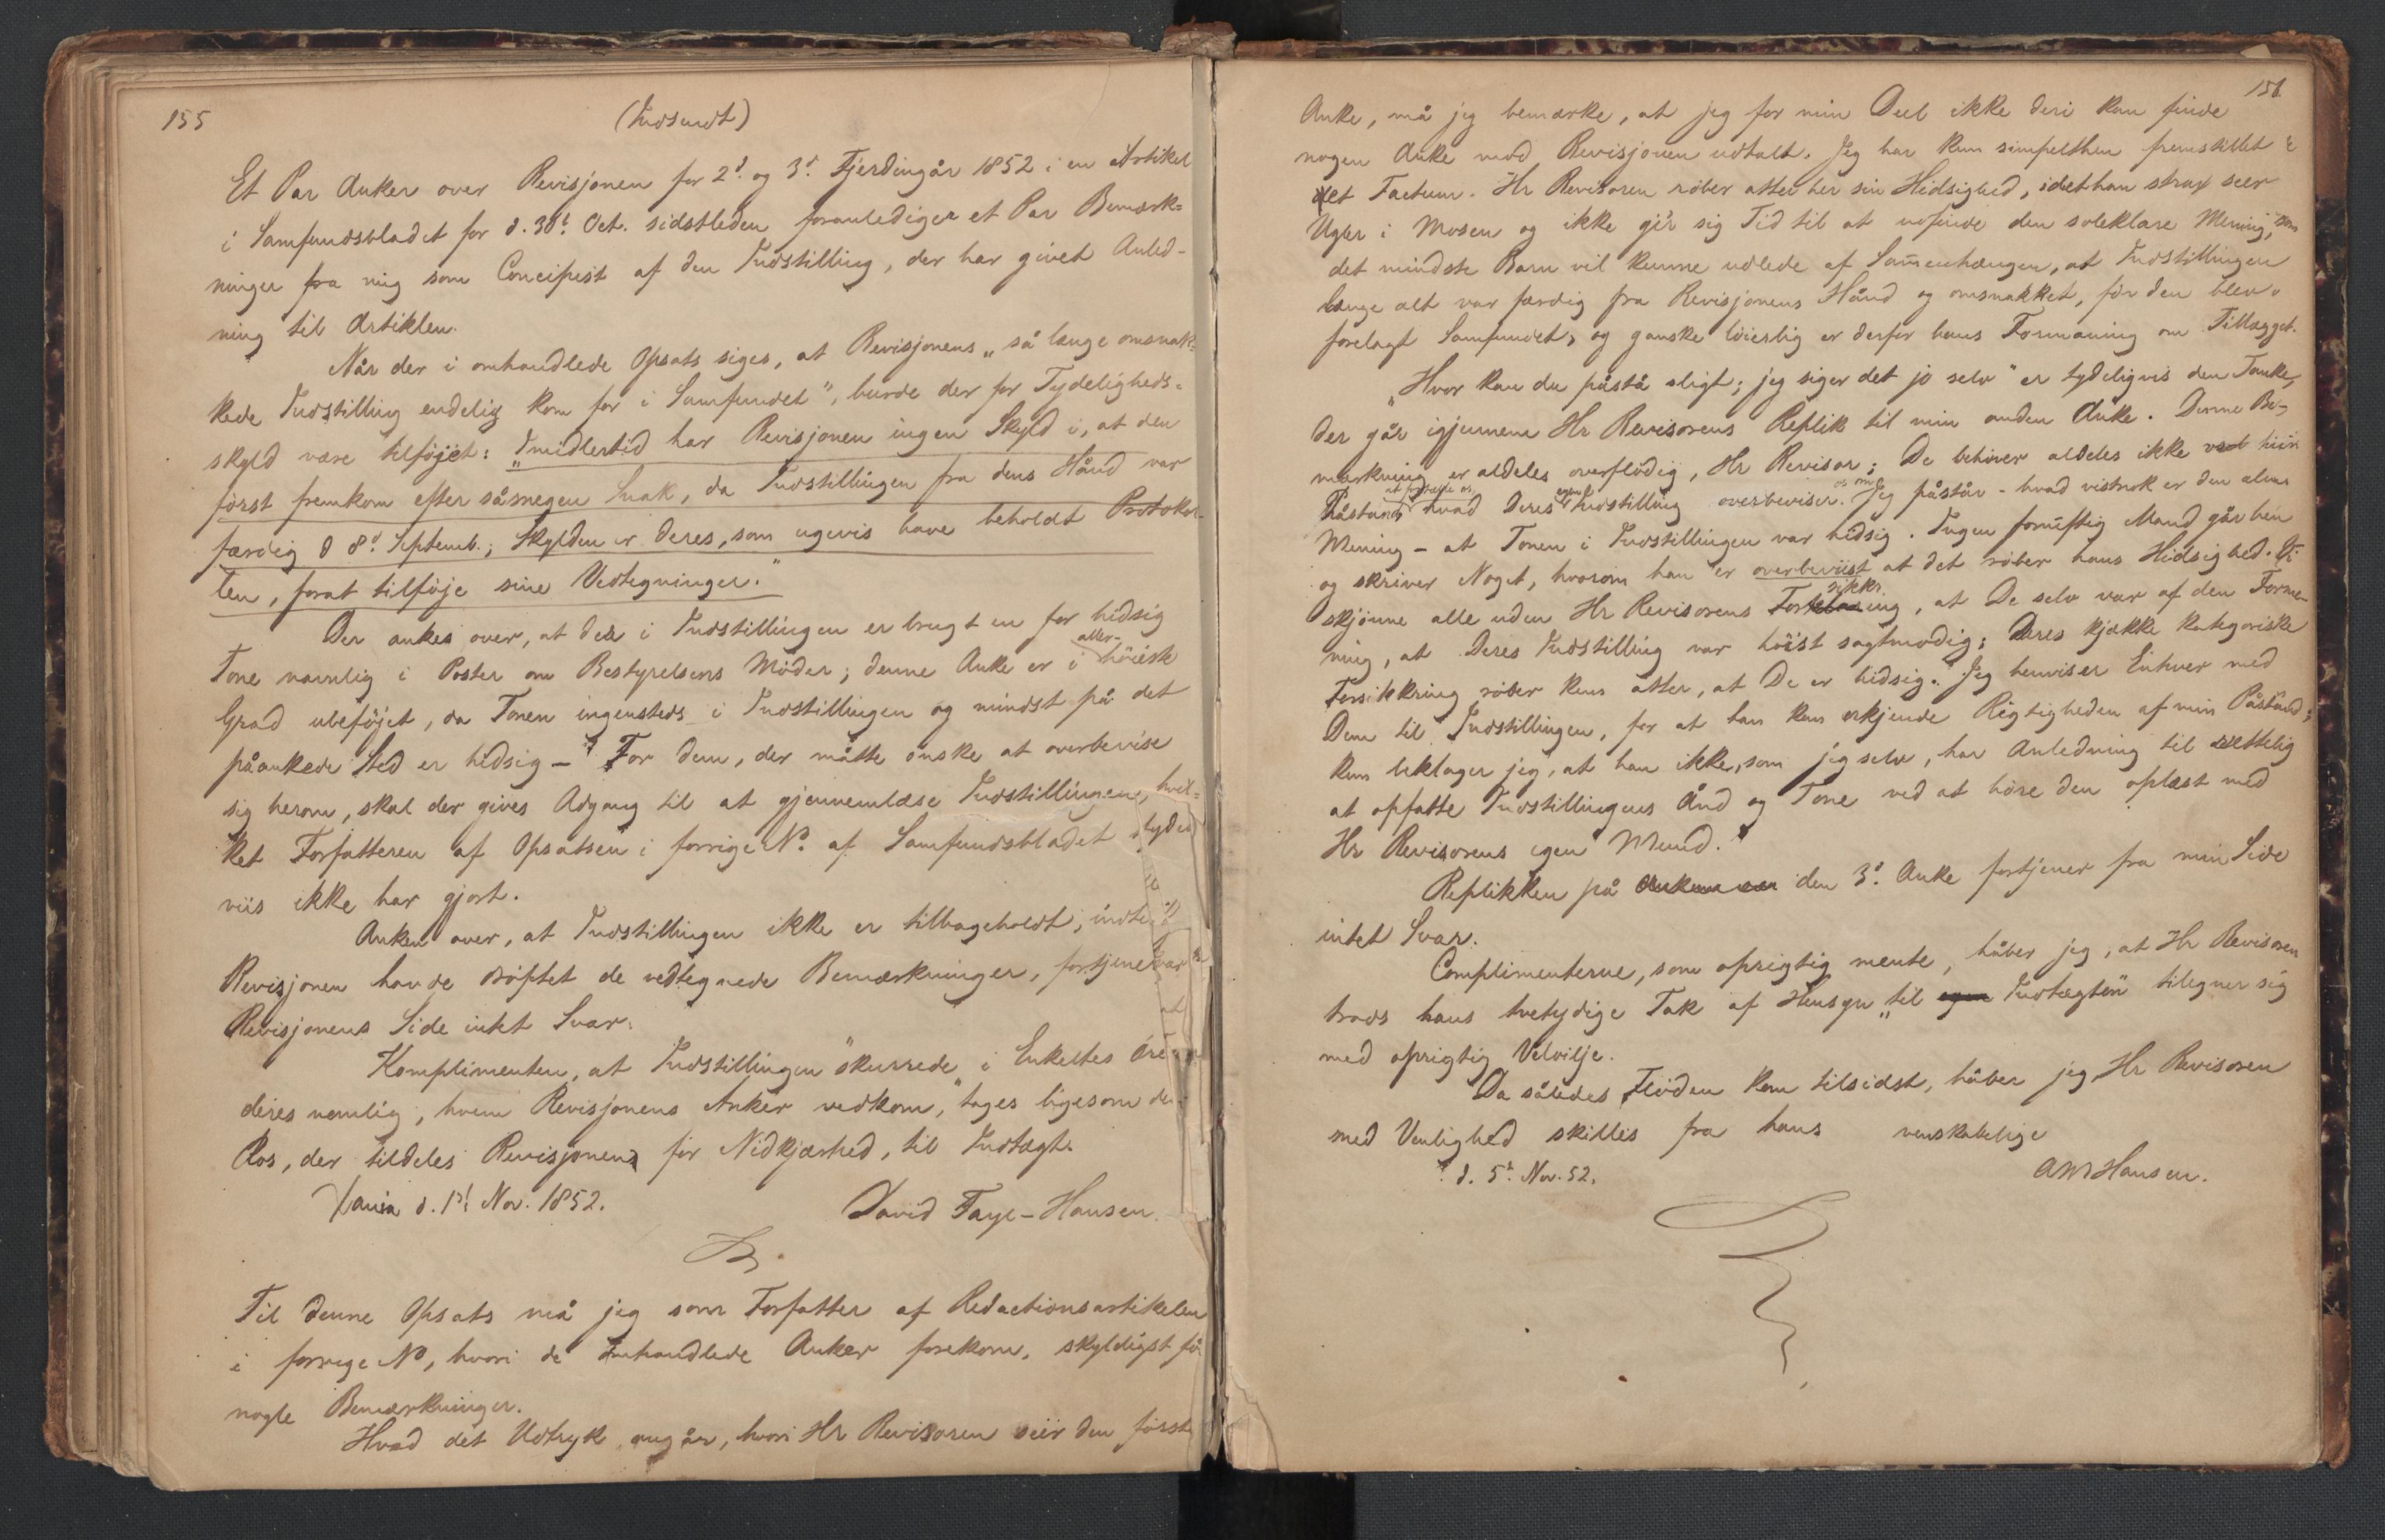 155
(Indsendt)
Et Par Anker over Revisjonen for 2d. og 3d. Fjerdingår 1852 i en Artikel
i Samfundsbladet for d. 30t. Oct. sidstleden foranlediger et Par Bemærk=
ninger fra mig som Concipist af den Indstilling, der har givet Anled-
ning til Artiklen.
Når der i omhandlede Opsats siges, at Revisjonens „så længe omsnak=
kede Indstilling endelig kom for i Samfundet", burde der for Tydeligheds-
skyld være tilföjet: „Imidlertid har Revisjonen ingen Skyld i, at den
först fremkom efter såmegen Snak, da Indstillingen fra dens Hånd var
færdig d 8d. Septemb.; Skylden er deres, som ugevis have beholdt Protokol-
len, forat tilföje sine Vedtegninger."
Der ankes over, at der i Indstillingen er brugt en for hidsig
Tone navnlig i Poster om Bestyrelsens Möder; denne Anke er i aller-höieste
Grad uböföjet, da Tonen ingensteds i Indstillingen og mindst på det
påankede Sted er hidsig – For dem, der måtte önske at overbevise
sig herom, skal der gives Adgang til at gjennemlæse Indstillingen, hvil=
ket Forfatteren af Opsatsen i forrige No. af Samfundsbladet tydelig
viis ikke har gjort.
Anken over, at Indstillingen ikke er tilbageholdt, indtil
Revisjonen havde dröftet de vedtegnede Bemærkninger, fortjener fra
Revisjonens Side intet Svar.
Komplimenten, at Indstillingen "skurrede i Enkeltes Öre
deres nemlig, hvem Revisjonens Anker vedkom," tages ligesom den
Ros, der tildeles Revisjonen for Nidkjærhed, til Indtægt.
Xania d. 1st. Nov. 1852.
David Faye-Hansen.
Til denne Opsats må jeg som Forfatter af Redactionsartikelen
i forrige No, hvori de omhandlede Anker forekom, skyldigst föie
nogle Bemærkninger.
Hvad det Udtryk angår, hvori Hr Revisoren seer den förste
156
Anke, må jeg bemærke, at jeg for min Deel ikke deri kan finde
nogen Anke mod Revisjonen udtalt. Jeg har kun simpelthen fremstillet
et Factum. Hr Revisoren röber atter her sin Hidsighed, idet han strax seer
Ugler i Mosen og ikke gi'r sig Tid til at udfinde den soleklare Mening, som
det mindste Barn vil kunne udlede af Sam̄enhængen, at Indstillingen
længe alt var færdig fra Revisjonens Hånd og omsnakket, för den blev
forelagt Samfundet, og ganske löierlig er derfor hans Formaning om Tillægget.
„Hvor kan du påstå sligt; jeg siger det jo selv" er tydeligvis den Tanke,
der går igjennem Hr Revisorens Replik til min anden Anke. Denne Be=
mærkning er aldeles overflödig, Hr Revisor; De behöver aldeles ikke ved hiin
Påstand at fortælle os, hvad Deres egen Indstilling overbeviser os om. Jeg påstår - hvad vistnok er den alm.
Mening - at Tonen i Indstillingen var hidsig. Ingen fornuftig Mand går hen
og skriver Noget, hvorom han er overbeviist at det röber hans Hidsighed. Vi
skjönne alle uden Hr Revisorens Forsikkring, at De selv var af den Forme-
ning, at Deres Indstilling var höist sagtmodig; Deres kjække kategoriske
Forsikkring röber kun atter, at De er hidsig. Jeg henviser Enhver med
Dem til Indstillingen, for at han kan erkjende Rigtigheden af min Påstand;
kun beklager jeg, at han ikke, som jeg selv, har Anledning til rettelig
at opfatte Indstillingens Ånd og Tone ved at höre den oplæst med
Hr Revisorens egen Mund.
Replikken på den 3d. Anke fortjener fra min Side
intet Svar.
Complimenterne, som oprigtig mente, håber jeg, at Hr Revisoren
trods hans tvetydige Tak af Hensyn „til Indtægten" tilegner sig
med oprigtig Velvilje.
Da således Flöden kom tilsidst, håber jeg Hr Revisoren
med Venlighed skilles fra hans venskabelige
d. 5t. Nov. 52.
AMHansen.